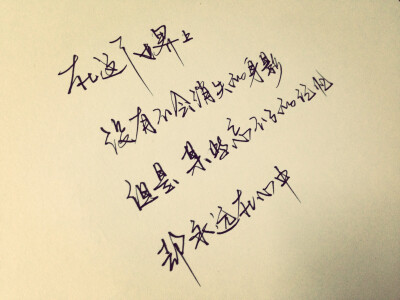 在这个世界上
没有不会消失的身影
但是、某些忘不了的往昔
却永远在心中